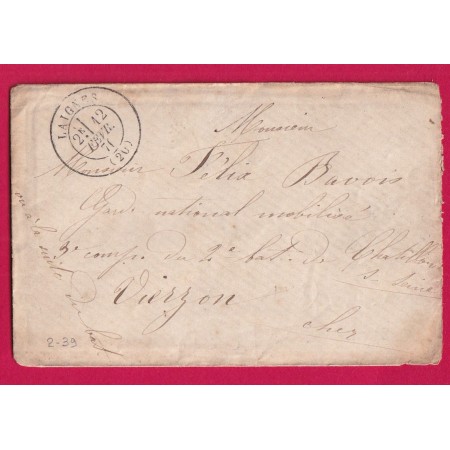 LAIGNES
2E
12
FEVR.
71
(20)
Monsieur
Monsieur Félix Bavois
Garde national mobilisé
3e comp. du 2e bat. de Chatillon
s Seine
Vierzon
Cher
ou à la suite du
2-39